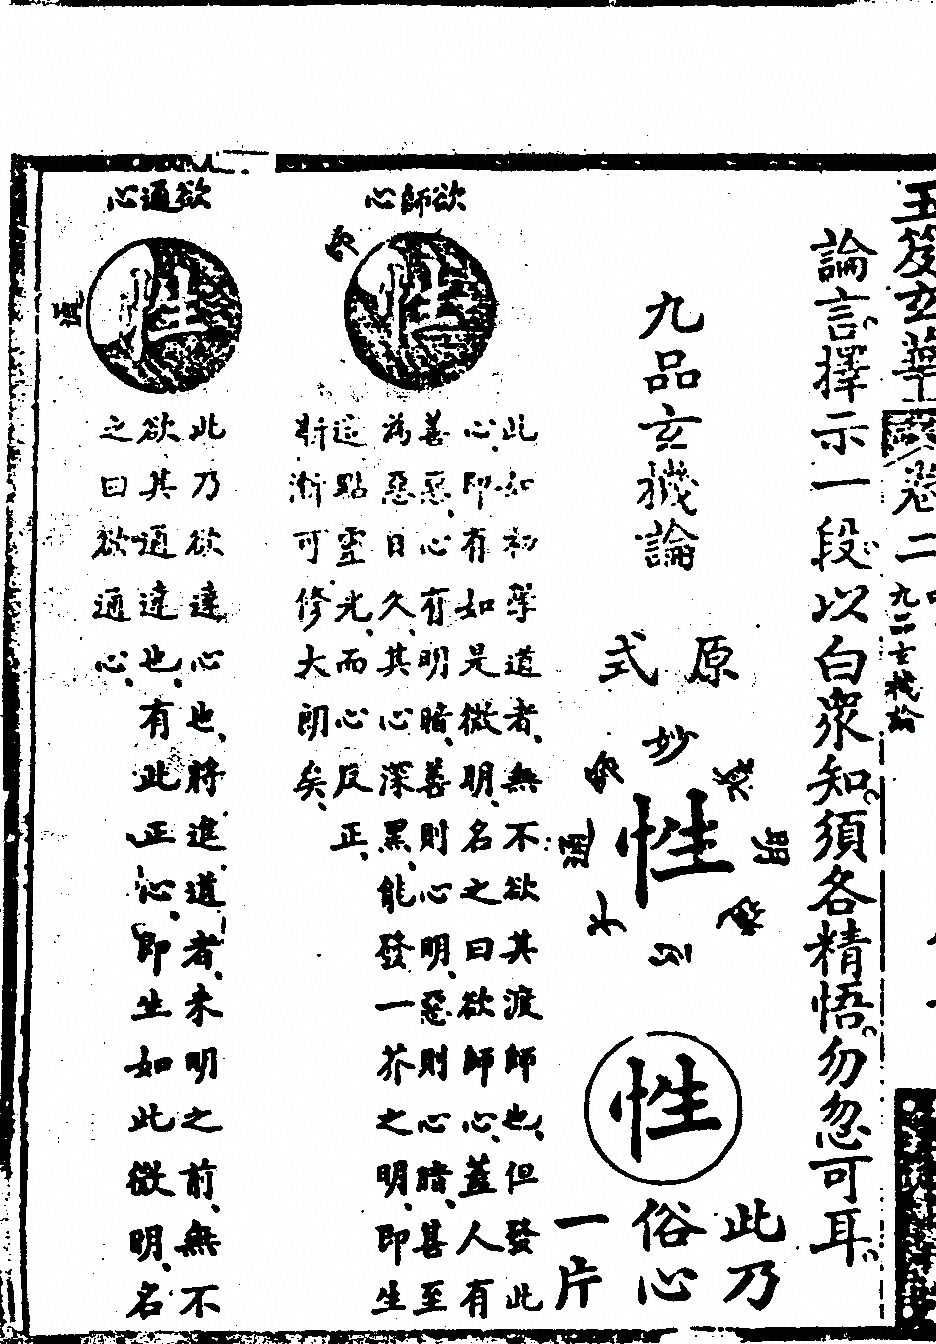 玉笈玄華
卷二
九品玄機論
論言擇示一段以白衆知須各精悟勿忽可耳
九品玄機論
原式
妙
明
心
性
性
此乃
俗心
一片
欲師心
性
此如初學道者、無不欲其渡師也、但發此
心、即有如是微明、名之曰欲師心、蓋人有
善惡、心有明暗、善則心明、惡則心暗、甚至
為惡日久、其心深黑、能發一芥之明、即生
這點靈光、而心反正、
漸漸可修大朗矣、
欲通心
通
性
此乃欲達心也、將進道者、未明之前、無不
欲其通達也、有此正心、即生如此微明、名
之曰欲通心、